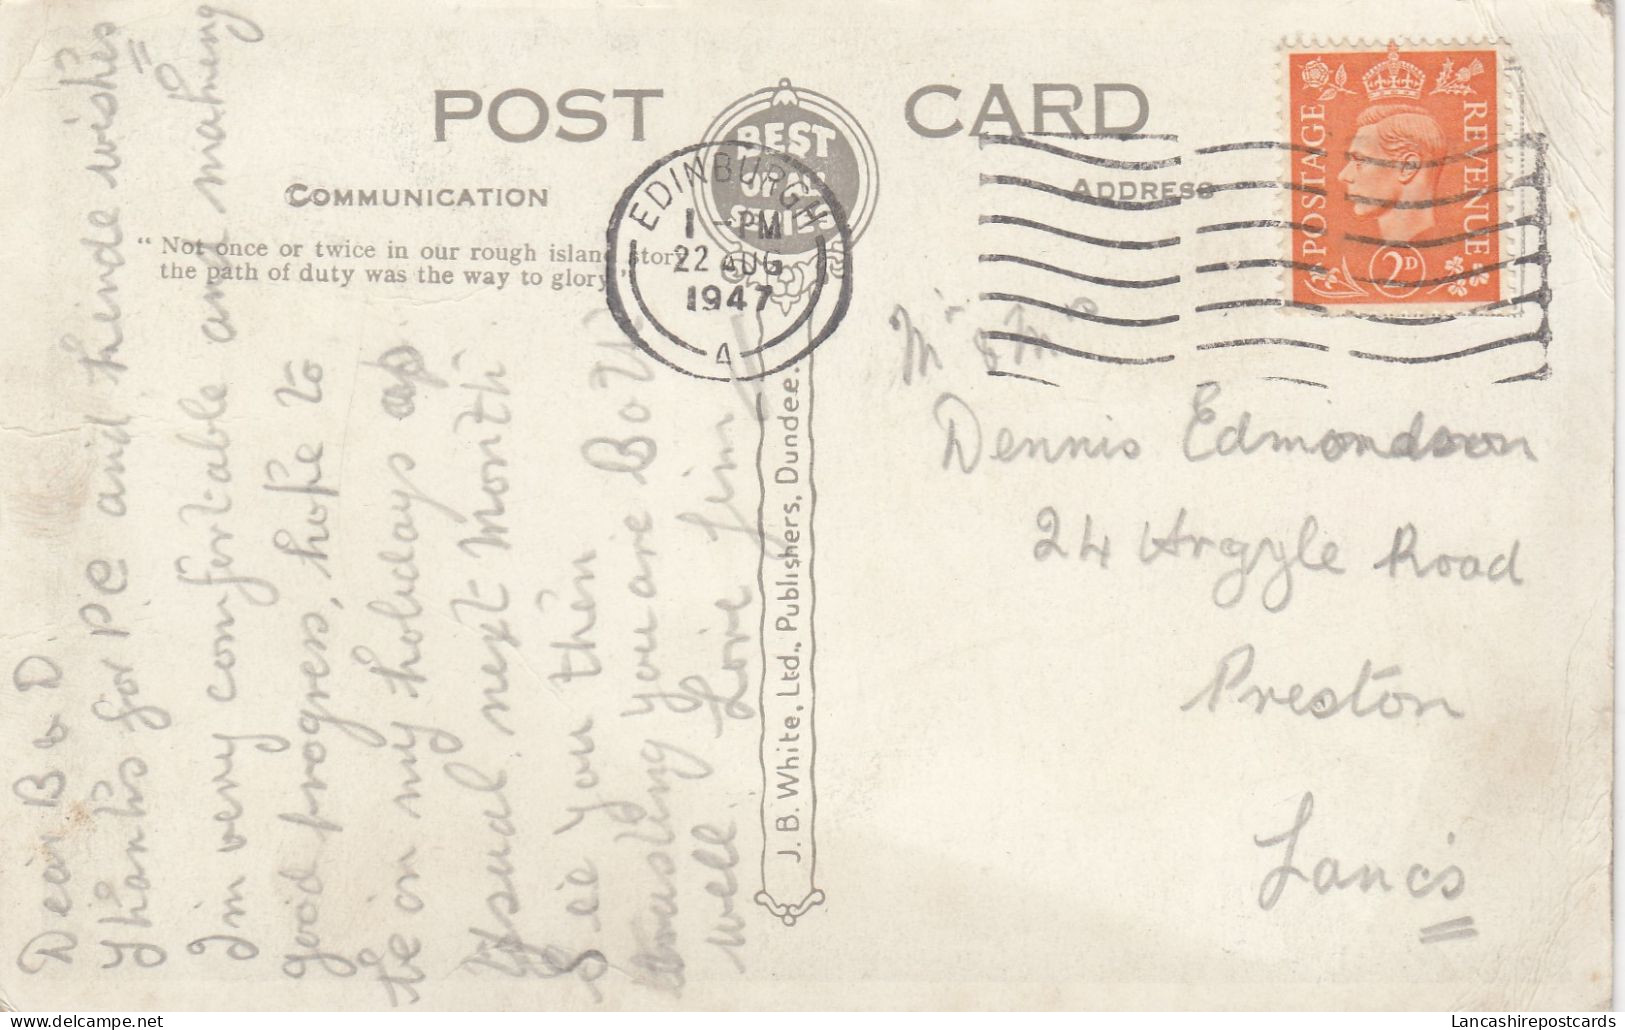 POST CARD
BEST OF ALL SERIES
COMMUNICATION
ADDRESS
" Not once or twice in our rough island story
the path of duty was the way to glory. "
EDINBURGH
1 - PM
22 AUG
1947
A
POSTAGE REVENUE
2D
J. B. White, Ltd., Publishers, Dundee.
Dear B & D
Thanks for PC and kinde wishes
Im very comfortable and making
good progress, hope to
be on my holidays as
usual next month
See you then
trusting you are Both
well. Love Jim
Mr & Mrs
Dennis Edmondson
24 Argyle Road
Preston
Lancs
Lancashirepostcards